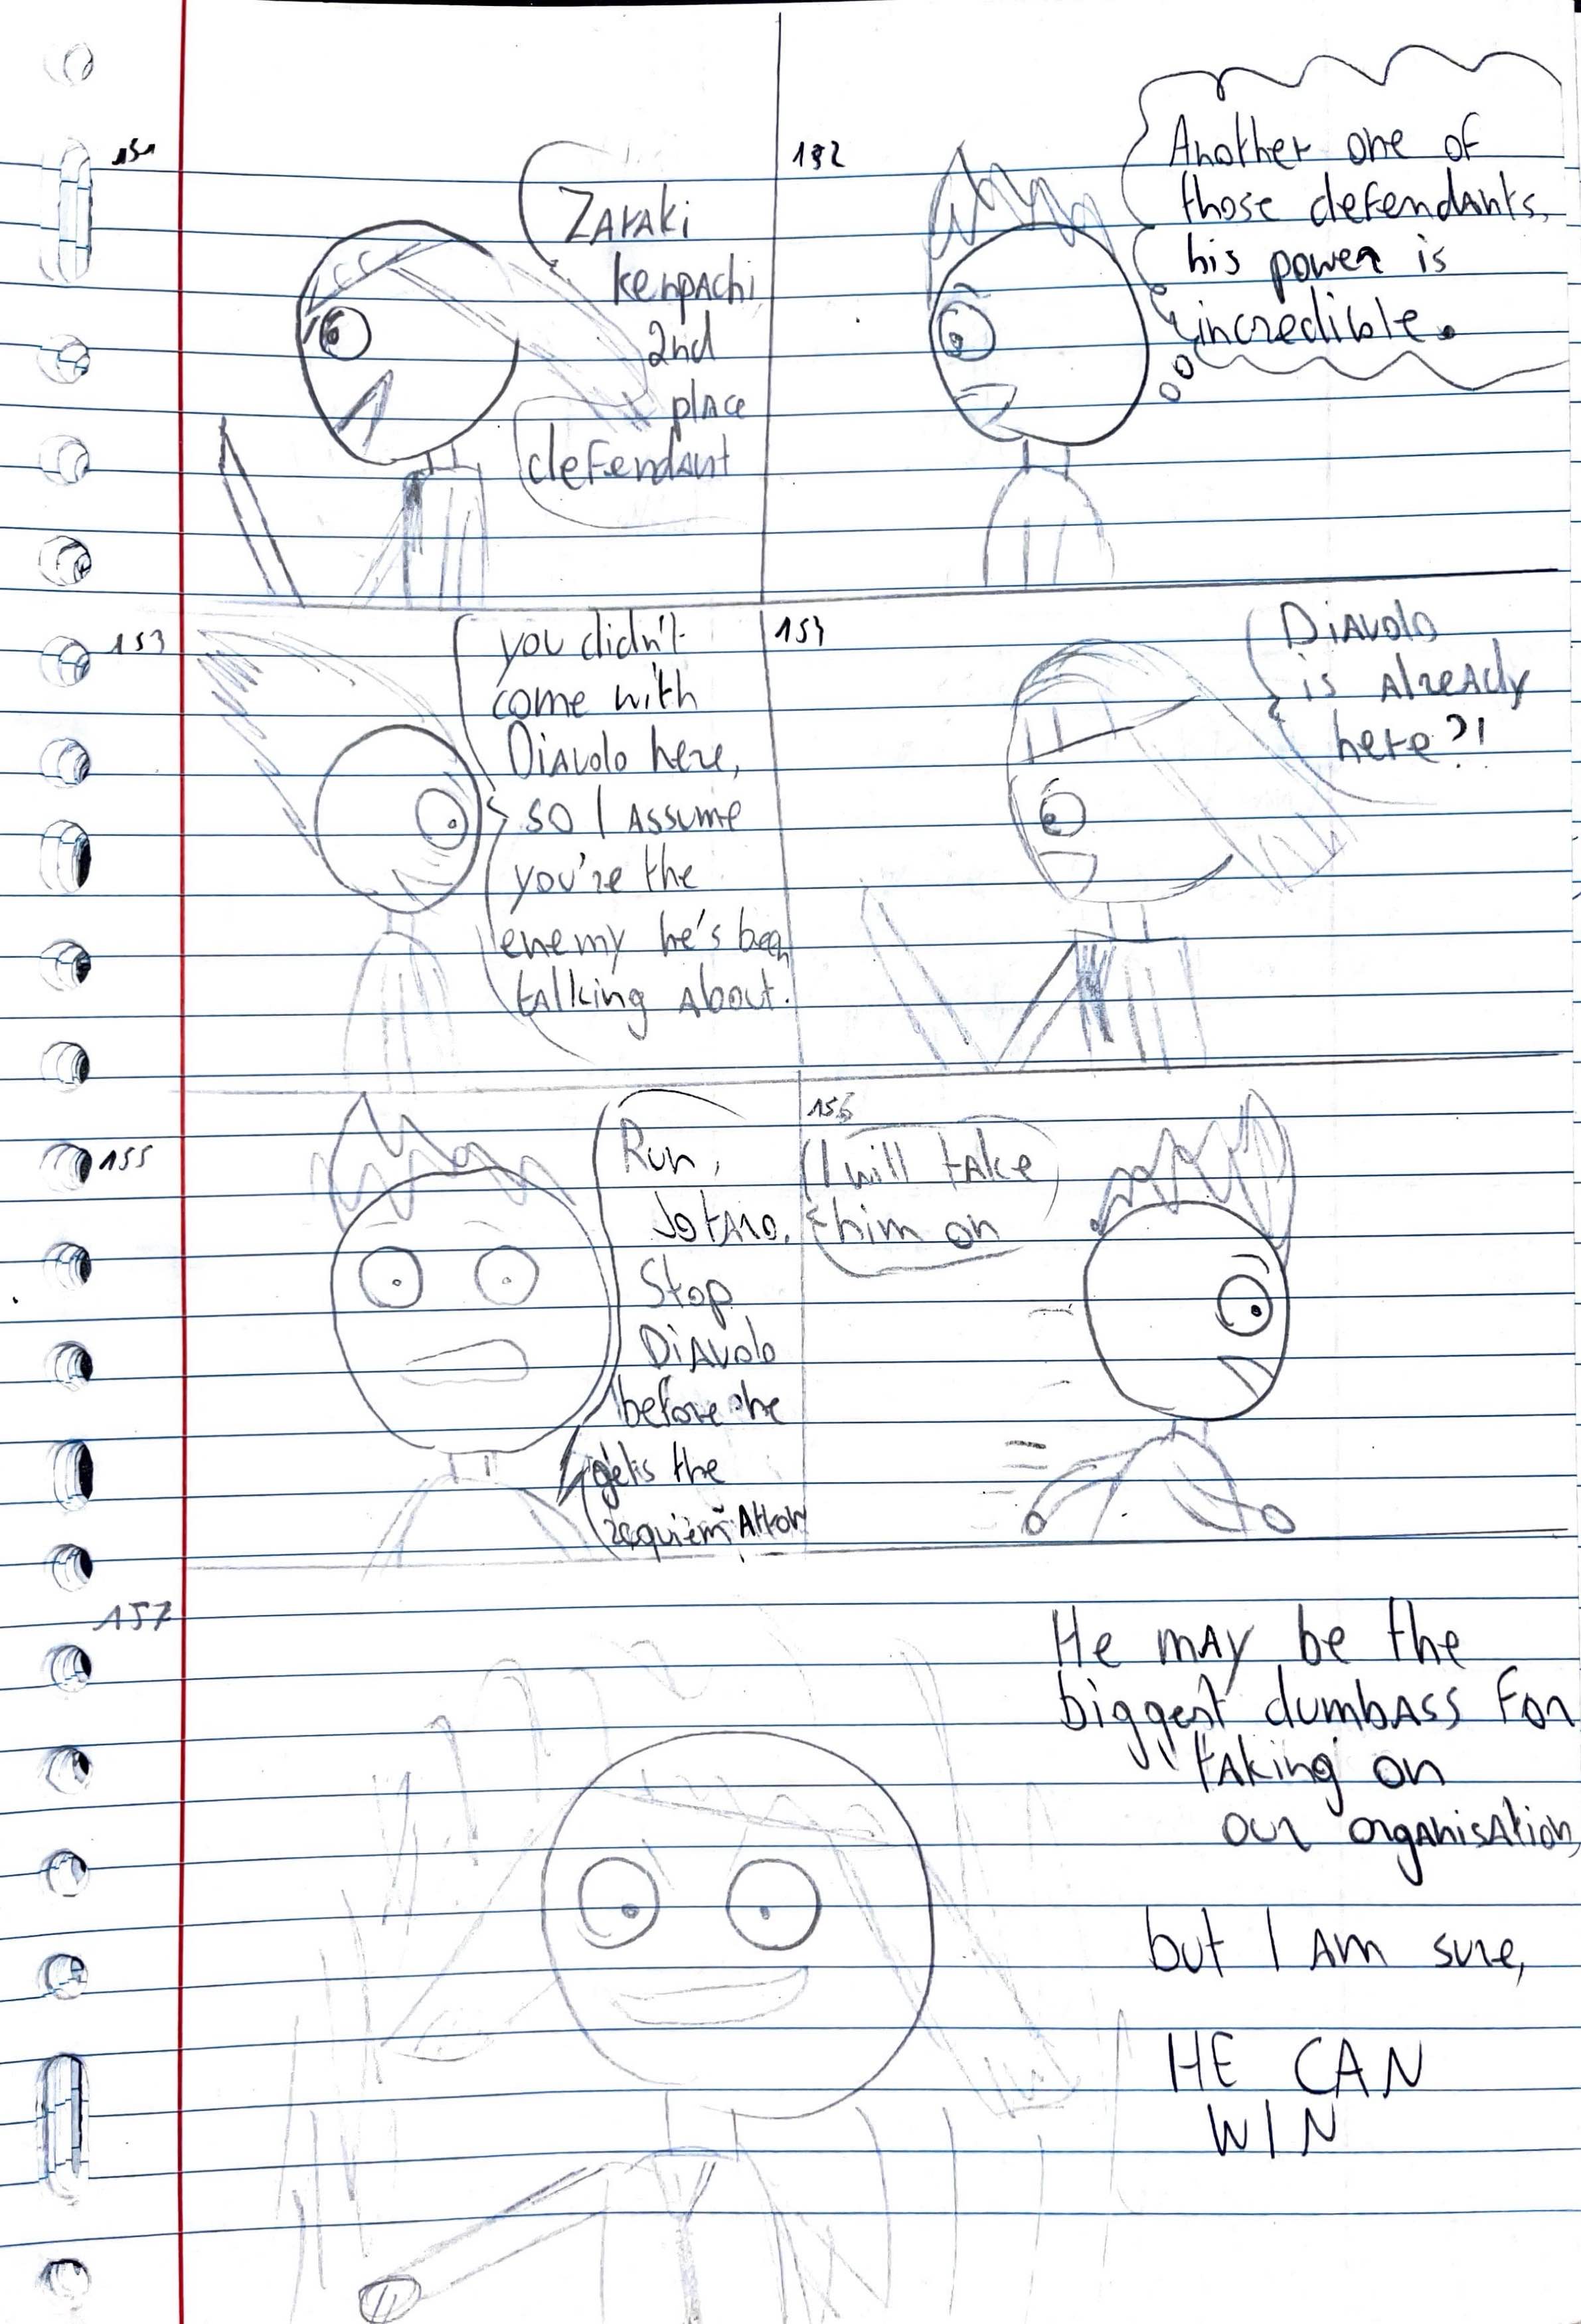 151
Zaraki
kenpachi
2nd
place
defendant
152
Another one of
those defendants,
his power is
incredible.
153
you didn't
come with
Diavolo here,
so I assume
you're the
enemy he's been
talking about.
154
Diavolo
is already
here?!
155
Run,
Jotaro.
Stop
Diavolo
before he
gets the
requiem Arrow
156
I will take
him on
157
He may be the
biggest dumbass for
taking on
our organisation,
but I am sure,
HE CAN
WIN